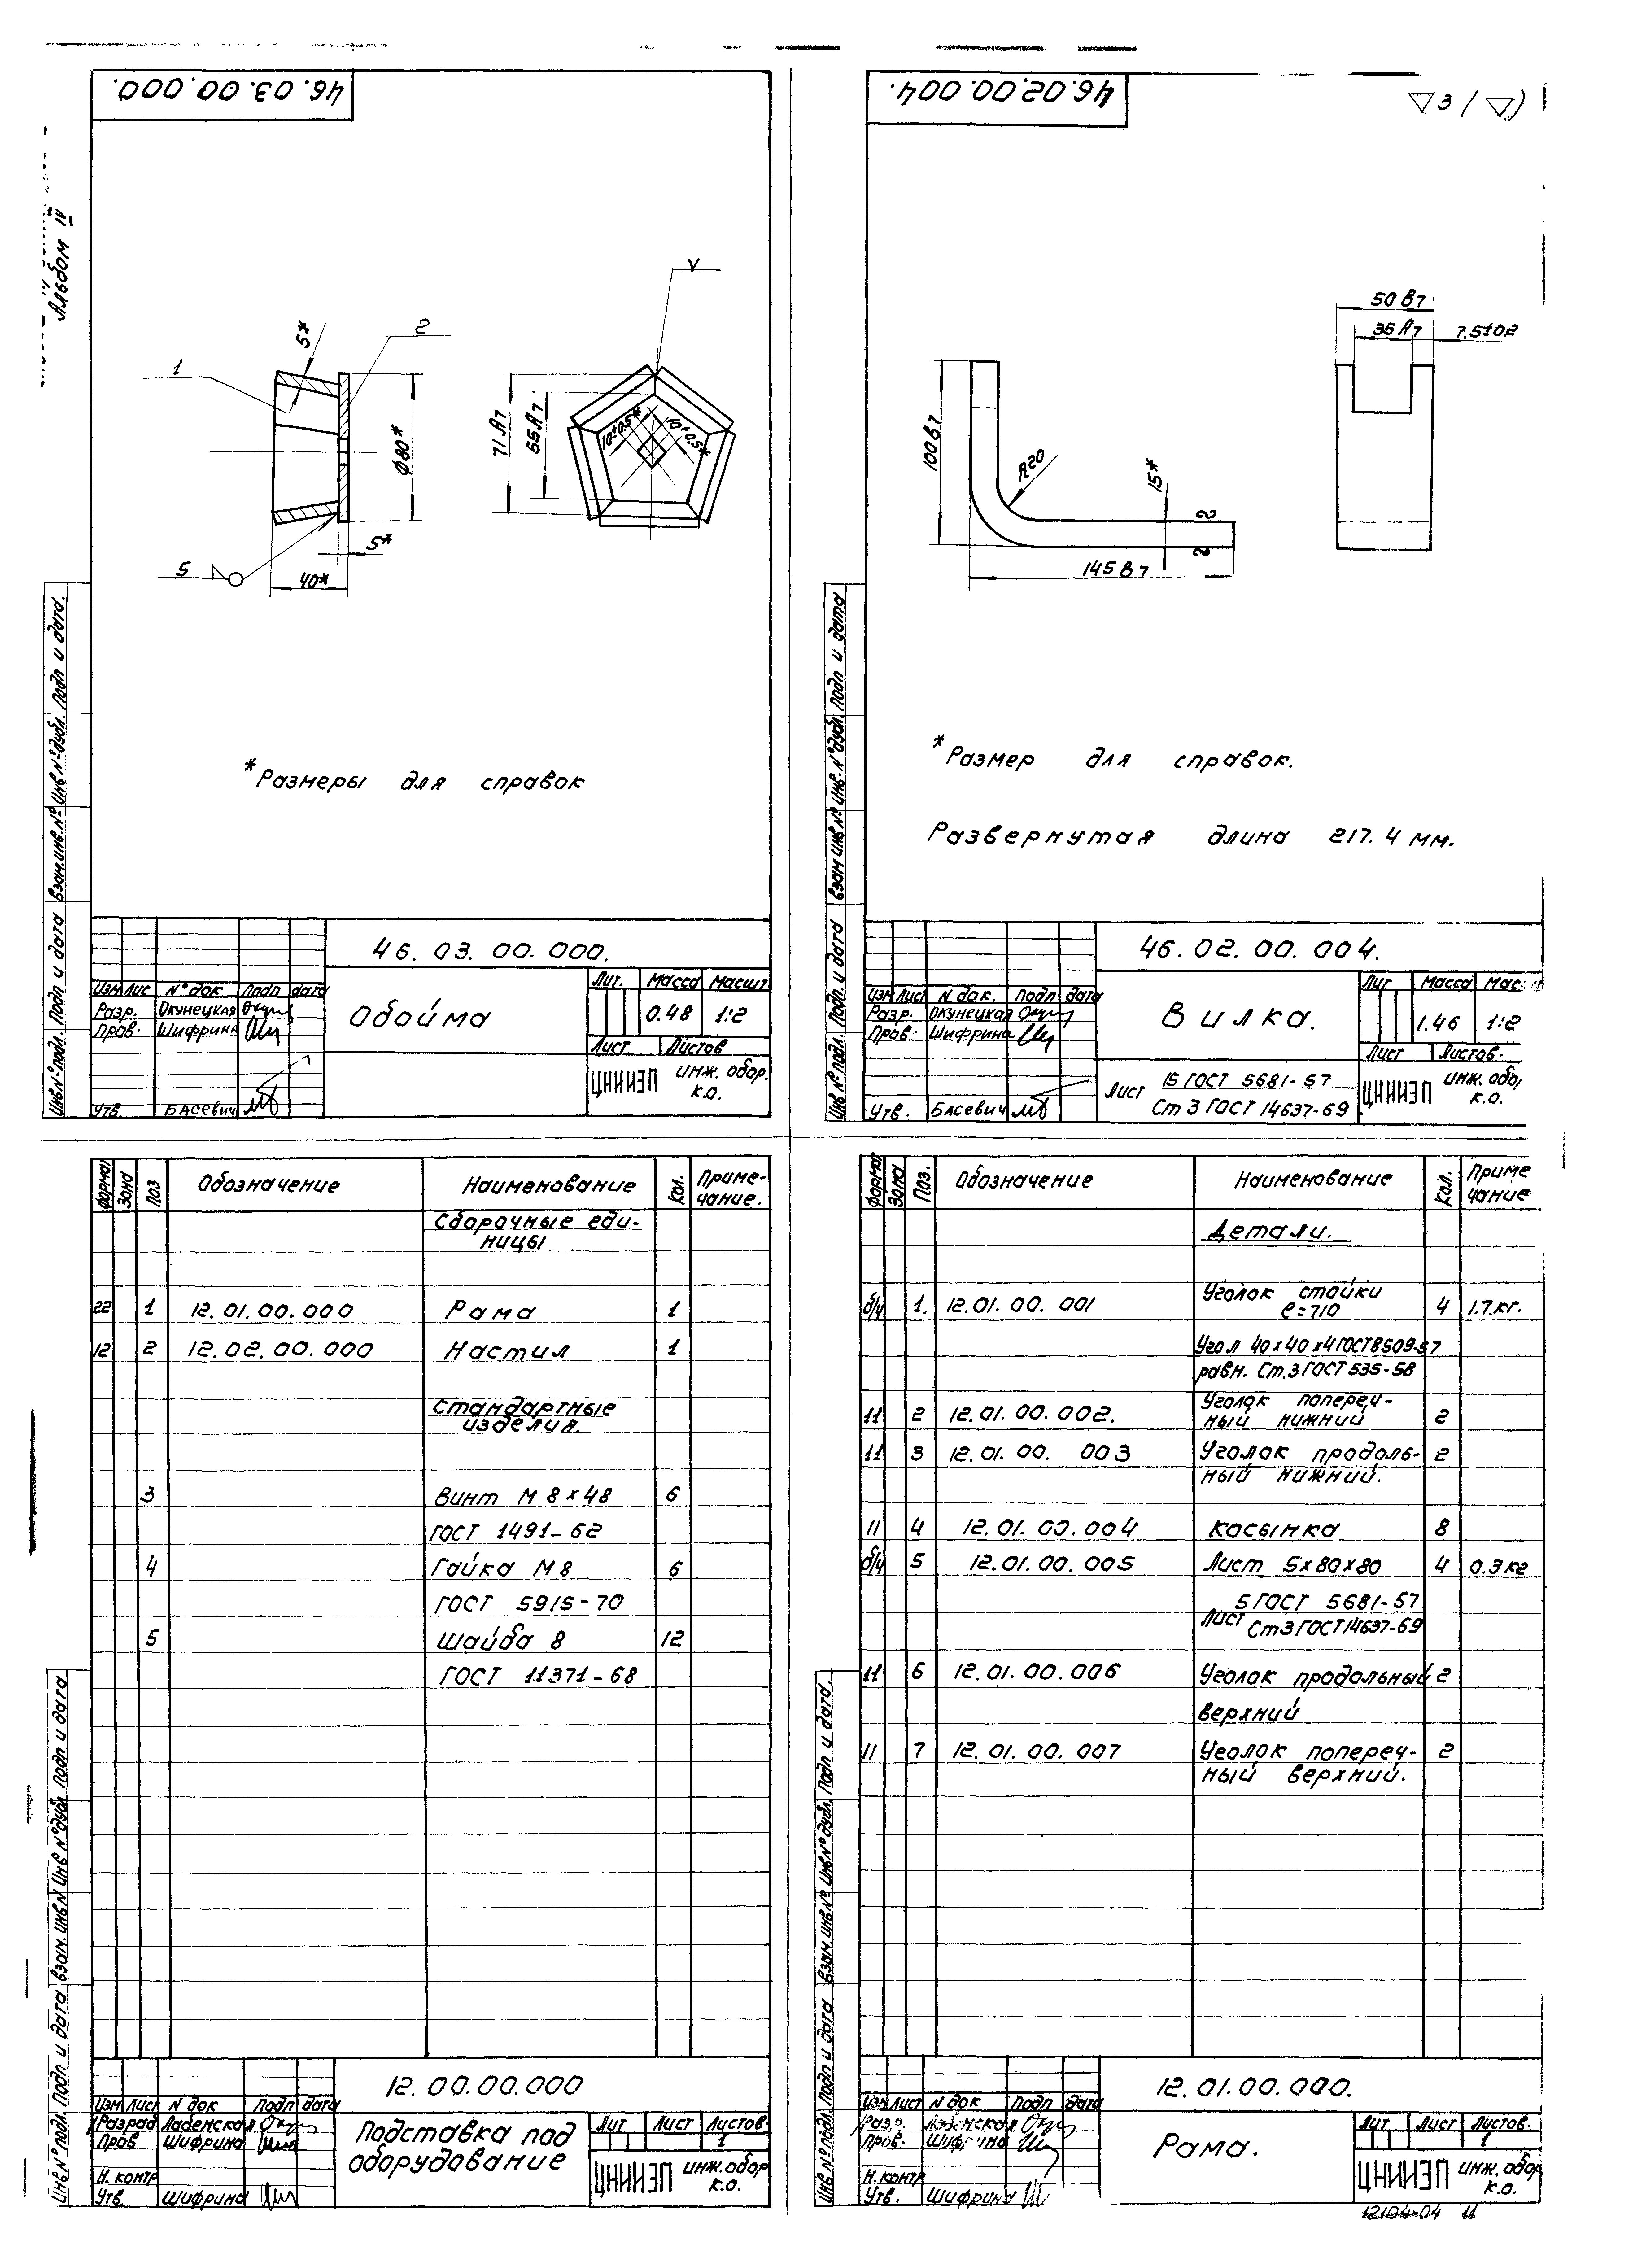 Альбом IV
46.03.00.000.
1
5*
2
ϕ80*
5*
40*
5
V
71 А7
55 А7
10±0.5*
10±0.5*
*Размеры для справок
46.03.00.000.
Изм Лис N°док подп дата
Разр. Окунецкая
Пров. Шифрина
Утв. Басевич
Обойма
Лит. Масса Масшт.
0.48 1:2
Лист Листов
ЦНИИЭП инж. обор.
к.о.
Инв.N°подл. Подп и дата Взам.инв.N° Инв N°дубл. Подп и дата.
46.02.00.004.
▽3 (▽)
50 В7
35 А7
7.5±0.2
100 В7
R20
15*
2
2
145 В7
*Размер для справок.
Развернутая длина 217.4 мм.
46.02.00.004.
Изм Лист N док. подп дата
Разр. Окунецкая
Пров. Шифрина
Утв. Басевич
Вилка.
Лит Масса
1.46 1:2
Лист Листов.
Лист 15 ГОСТ 5681-57
Ст 3 ГОСТ 14637-69
ЦНИИЭП инж. обо
к.о.
Инв N°подл. Подп. и дата Взам инв N° Инв. N°дубл. Подп и дата
Формат Зона Поз Обозначение Наименование Кол. Приме-
чание.
Сборочные еди-
ницы
22 1 12.01.00.000 Рама 1
12 2 12.02.00.000 Настил 1
Стандартные
изделия.
3 Винт М 8×48 6
ГОСТ 1491-62
4 Гайка М8 6
ГОСТ 5915-70
5 Шайба 8 12
ГОСТ 11371-68
12.00.00.000
Изм Лист N док подп дата
Разраб Ладенская
Пров Шифрина
Н. контр
Утв. Шифрина
Подставка под
оборудование
Лит Лист Листов.
1
ЦНИИЭП инж.обор
к.о.
Инв N°подл. Подп и дата Взам.инв N Инв N°дубл Подп и дата
Формат Зона Поз. Обозначение Наименование Кол. Приме
чание
Детали.
б/ч 1. 12.01.00.001 Уголок стойки
ℓ=710 4 1.7.кг.
Угол 40×40×4 ГОСТ 8509-57
равн. Ст.3 ГОСТ 535-58
11 2 12.01.00.002. Уголок попереч-
ный нижний 2
11 3 12.01.00.003 Уголок продоль-
ный нижний. 2
11 4 12.01.00.004 Косынка 8
б/ч 5 12.01.00.005 Лист 5×80×80 4 0.3 кг
Лист 5 ГОСТ 5681-57
Ст3 ГОСТ 14637-69
11 6 12.01.00.006 Уголок продольный 2
верхний
11 7 12.01.00.007 Уголок попереч-
ный верхний. 2
12.01.00.000.
Изм Лист N док подп дата
Разр. Ладенская
Пров. Шифрина
Н. контр
Утв. Шифрина
Рама.
Лит Лист Листов.
1
ЦНИИЭП инж. обор
к.о.
Инв N°подл. Подп и дата Взам.инв N° Инв N°дубл. Подп и дата.
12104-04 11